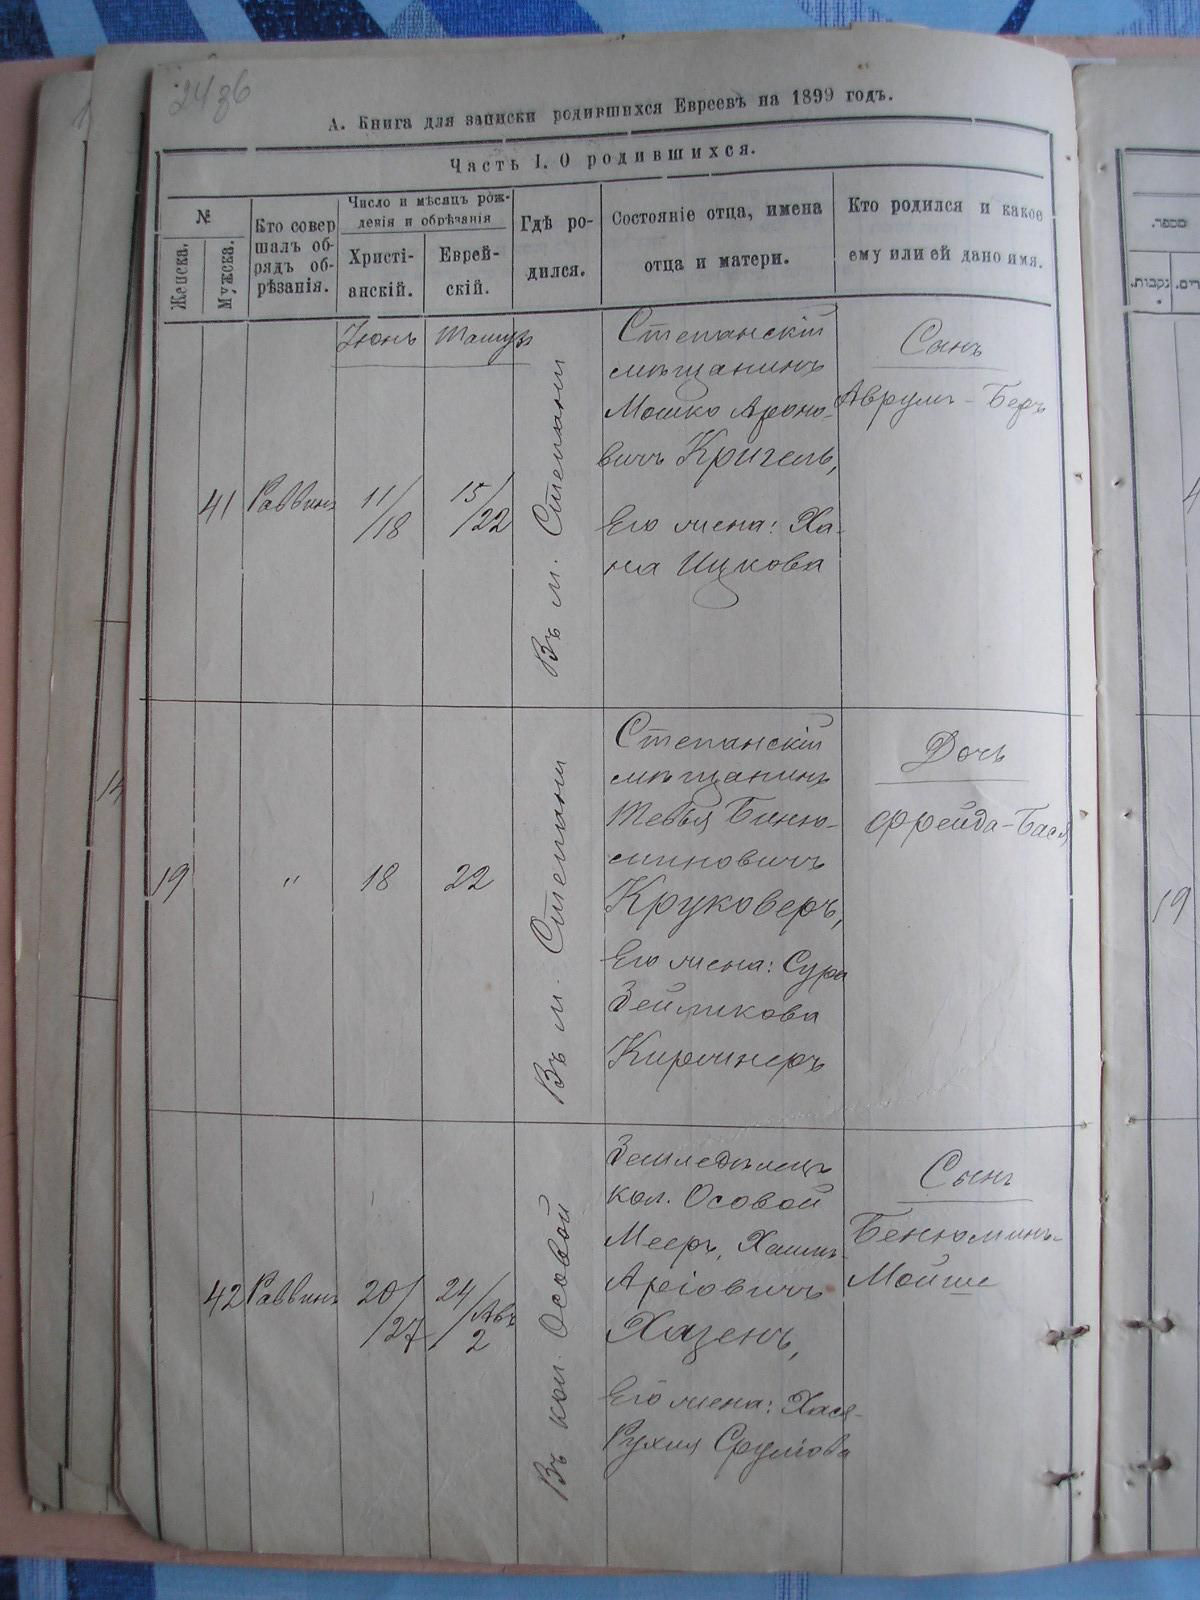 24зб
А. Книга для записки родившихся Евреевъ на 1899 годъ.
Часть I. О родившихся.
№
Женска.
Мужска.
Кто совер
шалъ об-
рядъ об-
рѣзанія.
Число и мѣсяцъ рож-
денія и обрѣзанія
Христі-
анскій.
Еврей-
скій.
Гдѣ ро-
дился.
Состояніе отца, имена
отца и матери.
Кто родился и какое
ему или ей дано имя.
Іюнь
Тамузъ
41
Раввинъ
11/
/18
15/
/22
Въ м. Степани
Степанскій
мѣщанинъ
Мошко Ароно-
вичъ Кригель,
Его жена: Ха-
на Ицкова
Сынъ
Аврумъ-Беръ
19
"
18
22
Въ м. Степани
Степанскій
мѣщанинъ
Тевья Биню-
миновичъ
Круковеръ,
Его жена: Сура
Зейликова
Киржнеръ
Дочь
Фрейда-Бася
42
Раввинъ
20/
/27
24/
/Авъ
2
Въ кол. Осовой
Земледѣлецъ
кол. Осовой
Мееръ, Хаимъ-
Аріовичъ
Хазенъ,
Его жена: Хася-
Рухля Срулiова
Сынъ
Бенюминъ-
Мойше
מספר.
נקבות.
19